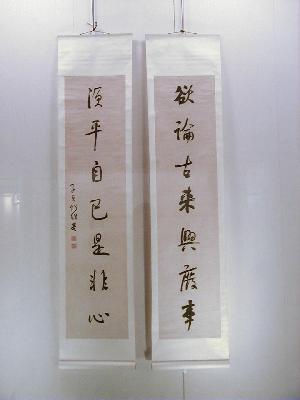 欲論古来興廢事
須平自己是非心